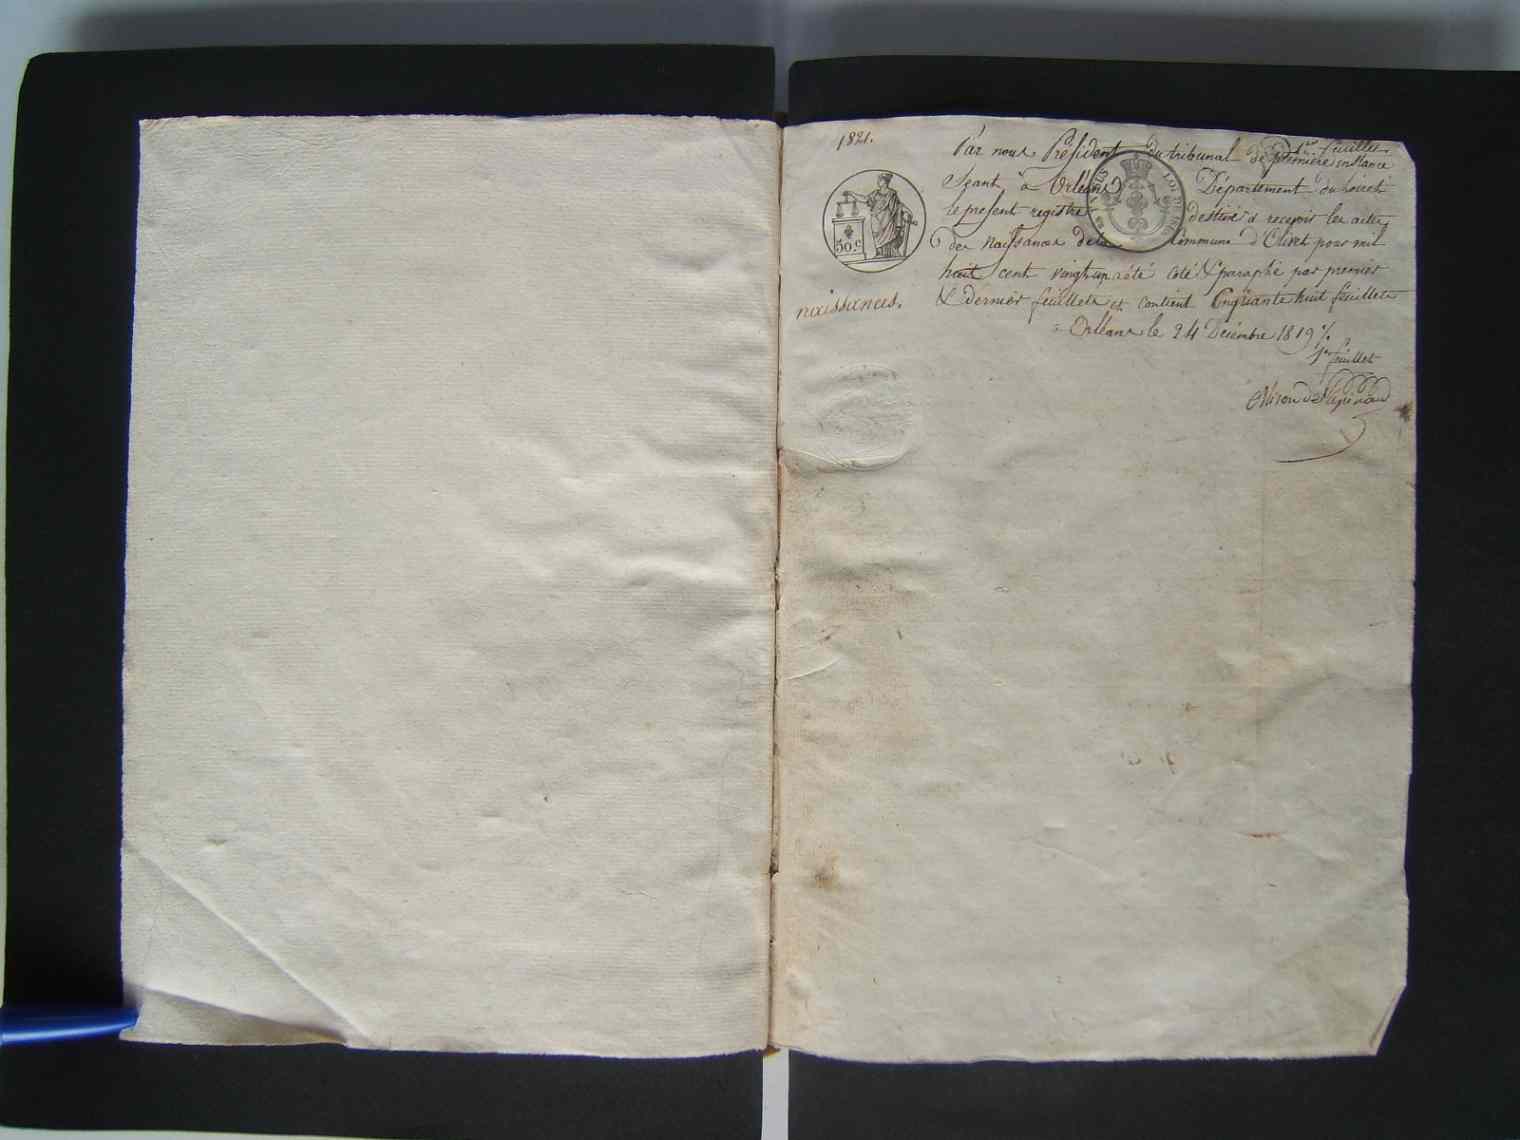 1821.
1er feuillet
Par nous Président du tribunal de première instance
Séant à Orléans Département du Loiret
le present registre destiné à recevoir les actes
de Naissances de la Commune d'Olivet pour mil
huit cent vingt un a été coté & paraphé par premier
& dernier feuillets et contient Cinquante huit feuillets
Orléans le 24 Décembre 1819 ./.
1er feuillet
50.c
naissances.